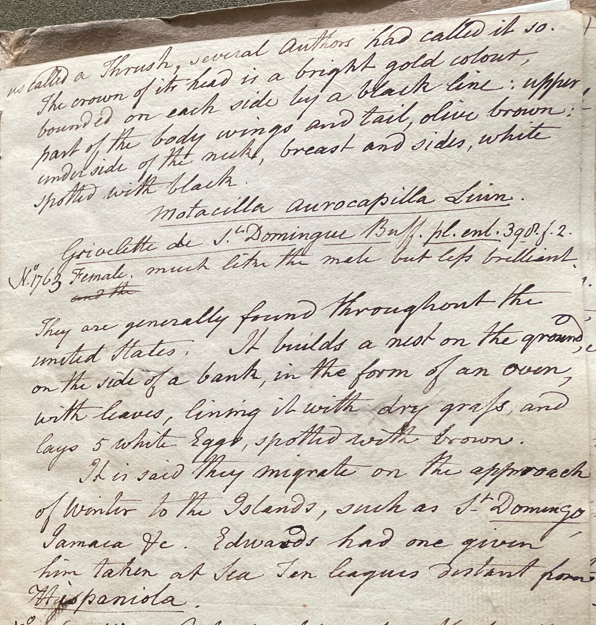 us called a Thrush, several Authors had called it so.
The crown of its head is a bright gold colour,
bounded on each side by a black line: upper
part of the body wings and tail, olive brown:
underside of the neck, breast and sides, white
spotted with black.
Motacilla aurocapilla Linn.
Grivelette de St. Domingue Buff. pl. enl. 398. f. 2.
No. 1763 Female. much like the male but less brilliant.
and the
They are generally found throughout the
united States. It builds a nest on the ground,
on the side of a bank, in the form of an oven,
with leaves, lining it with dry grass, and
lays 5 white Eggs, spotted with brown.
It is said they migrate on the approach
of Winter to the Islands, such as St. Domingo,
Jamaca &c. Edwards had one given
him taken at Sea Ten leagues distant from
Hyspaniola.